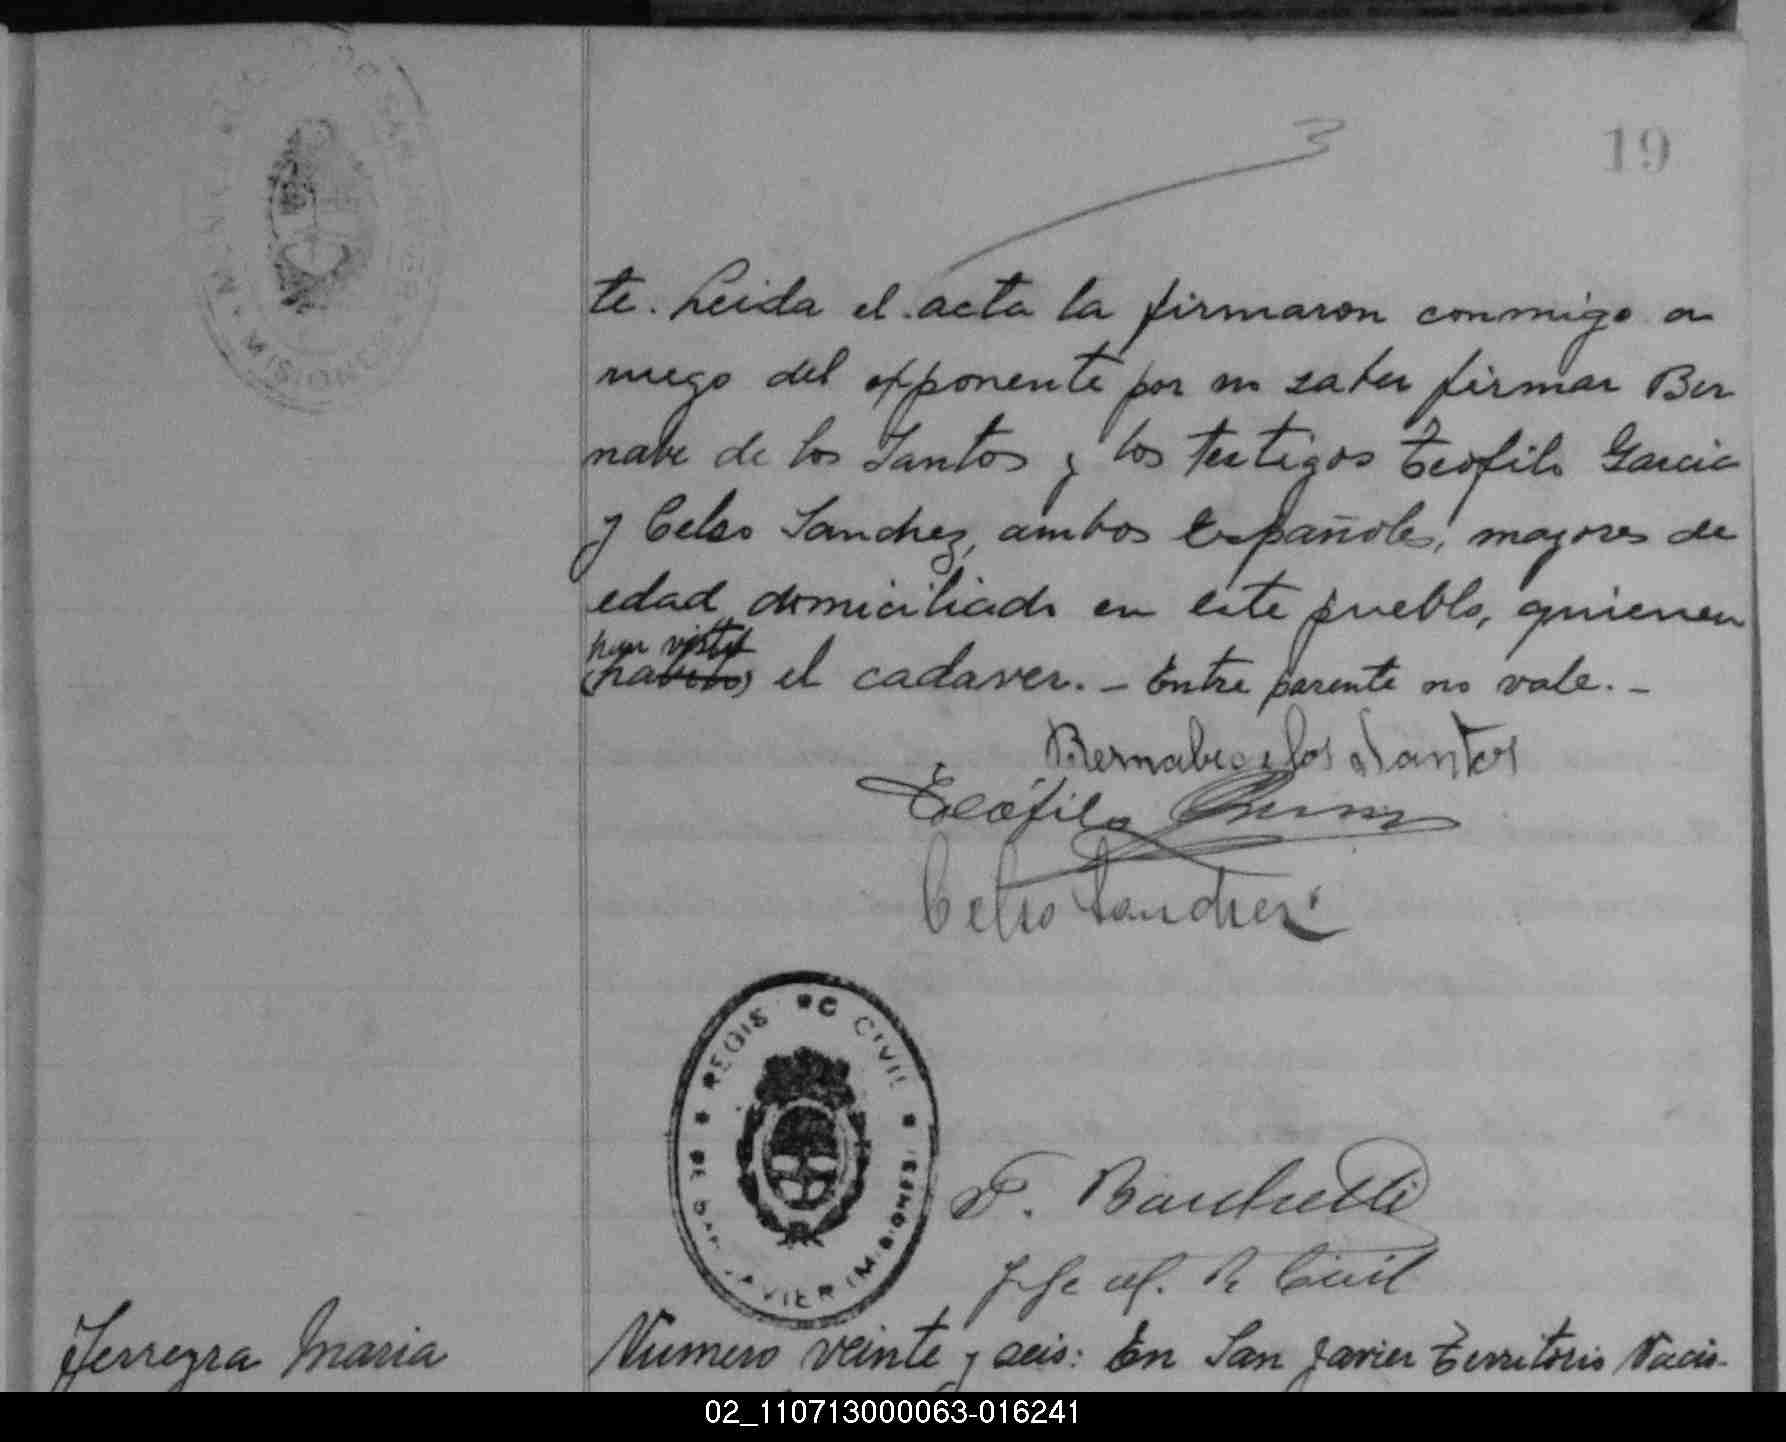 3
19
te. Leida el acta la firmaron conmigo a
ruego del exponente por no saber firmar Ber
nabe de los Santos y los testigos Teofilo Garcia
y Celso Sanchez, ambos Españoles, mayores de
edad domiciliado en este pueblo, quienes
han visto
(habido) el cadaver. - Entre parente no vale. -
Bernabe de los Santos
Teófilo
Celso Sanchez
REGIS RO CIVIL
DE SAN JAVIER (MISIONES)
Jefe del R. Civil
Ferreyra Maria
Numero veinte y seis: En San Javier Territorio Nacio-
02_110713000063-016241